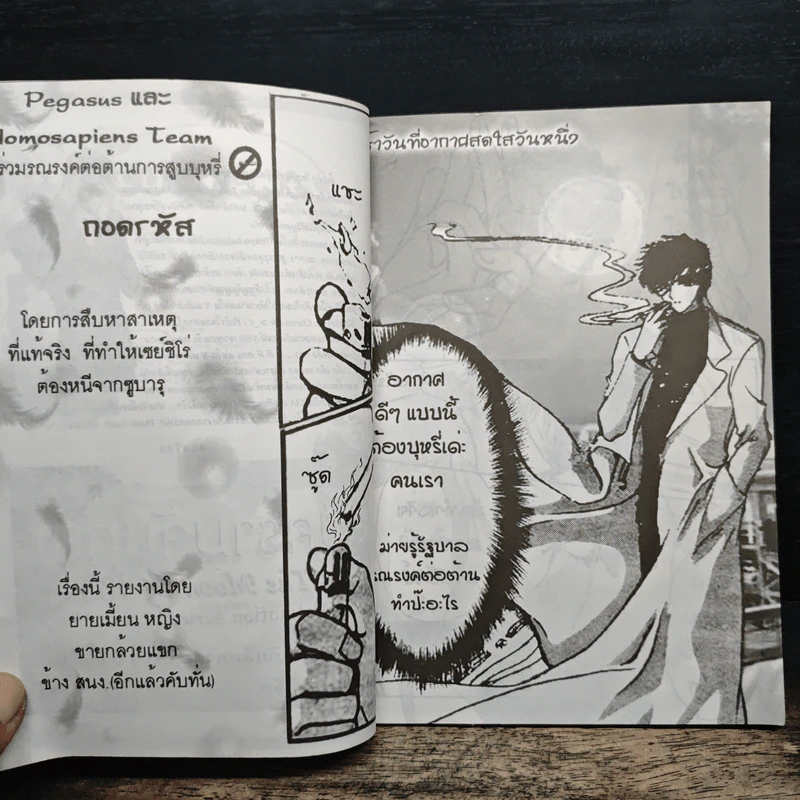 Pegasus และ
Homosapiens Team
ร่วมรณรงค์ต่อต้านการสูบบุหรี่
ถอดรหัส
โดยการสืบหาสาเหตุ
ที่แท้จริง ที่ทำให้เซย์ชิโร่
ต้องหนีจากซูบารุ
เรื่องนี้ รายงานโดย
ยายเมี้ยน หญิง
ขายกล้วยแขก
ข้าง สนง.(อีกแล้วคับทั่น)
แชะ
ซู๊ด
วันที่อากาศสดใสวันหนึ่ง
อากาศ
ดีๆ แบบนี้
ต้องบุหรี่เด่ะ
คนเรา
ม่ายรู้รัฐบาล
รณรงค์ต่อต้าน
ทำป๊ะอะไร